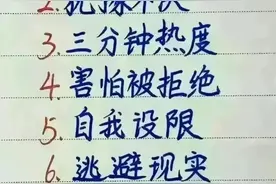 2.犹豫不决
3.三分钟热度
4.害怕被拒绝
5.自我设限
6.逃避现实